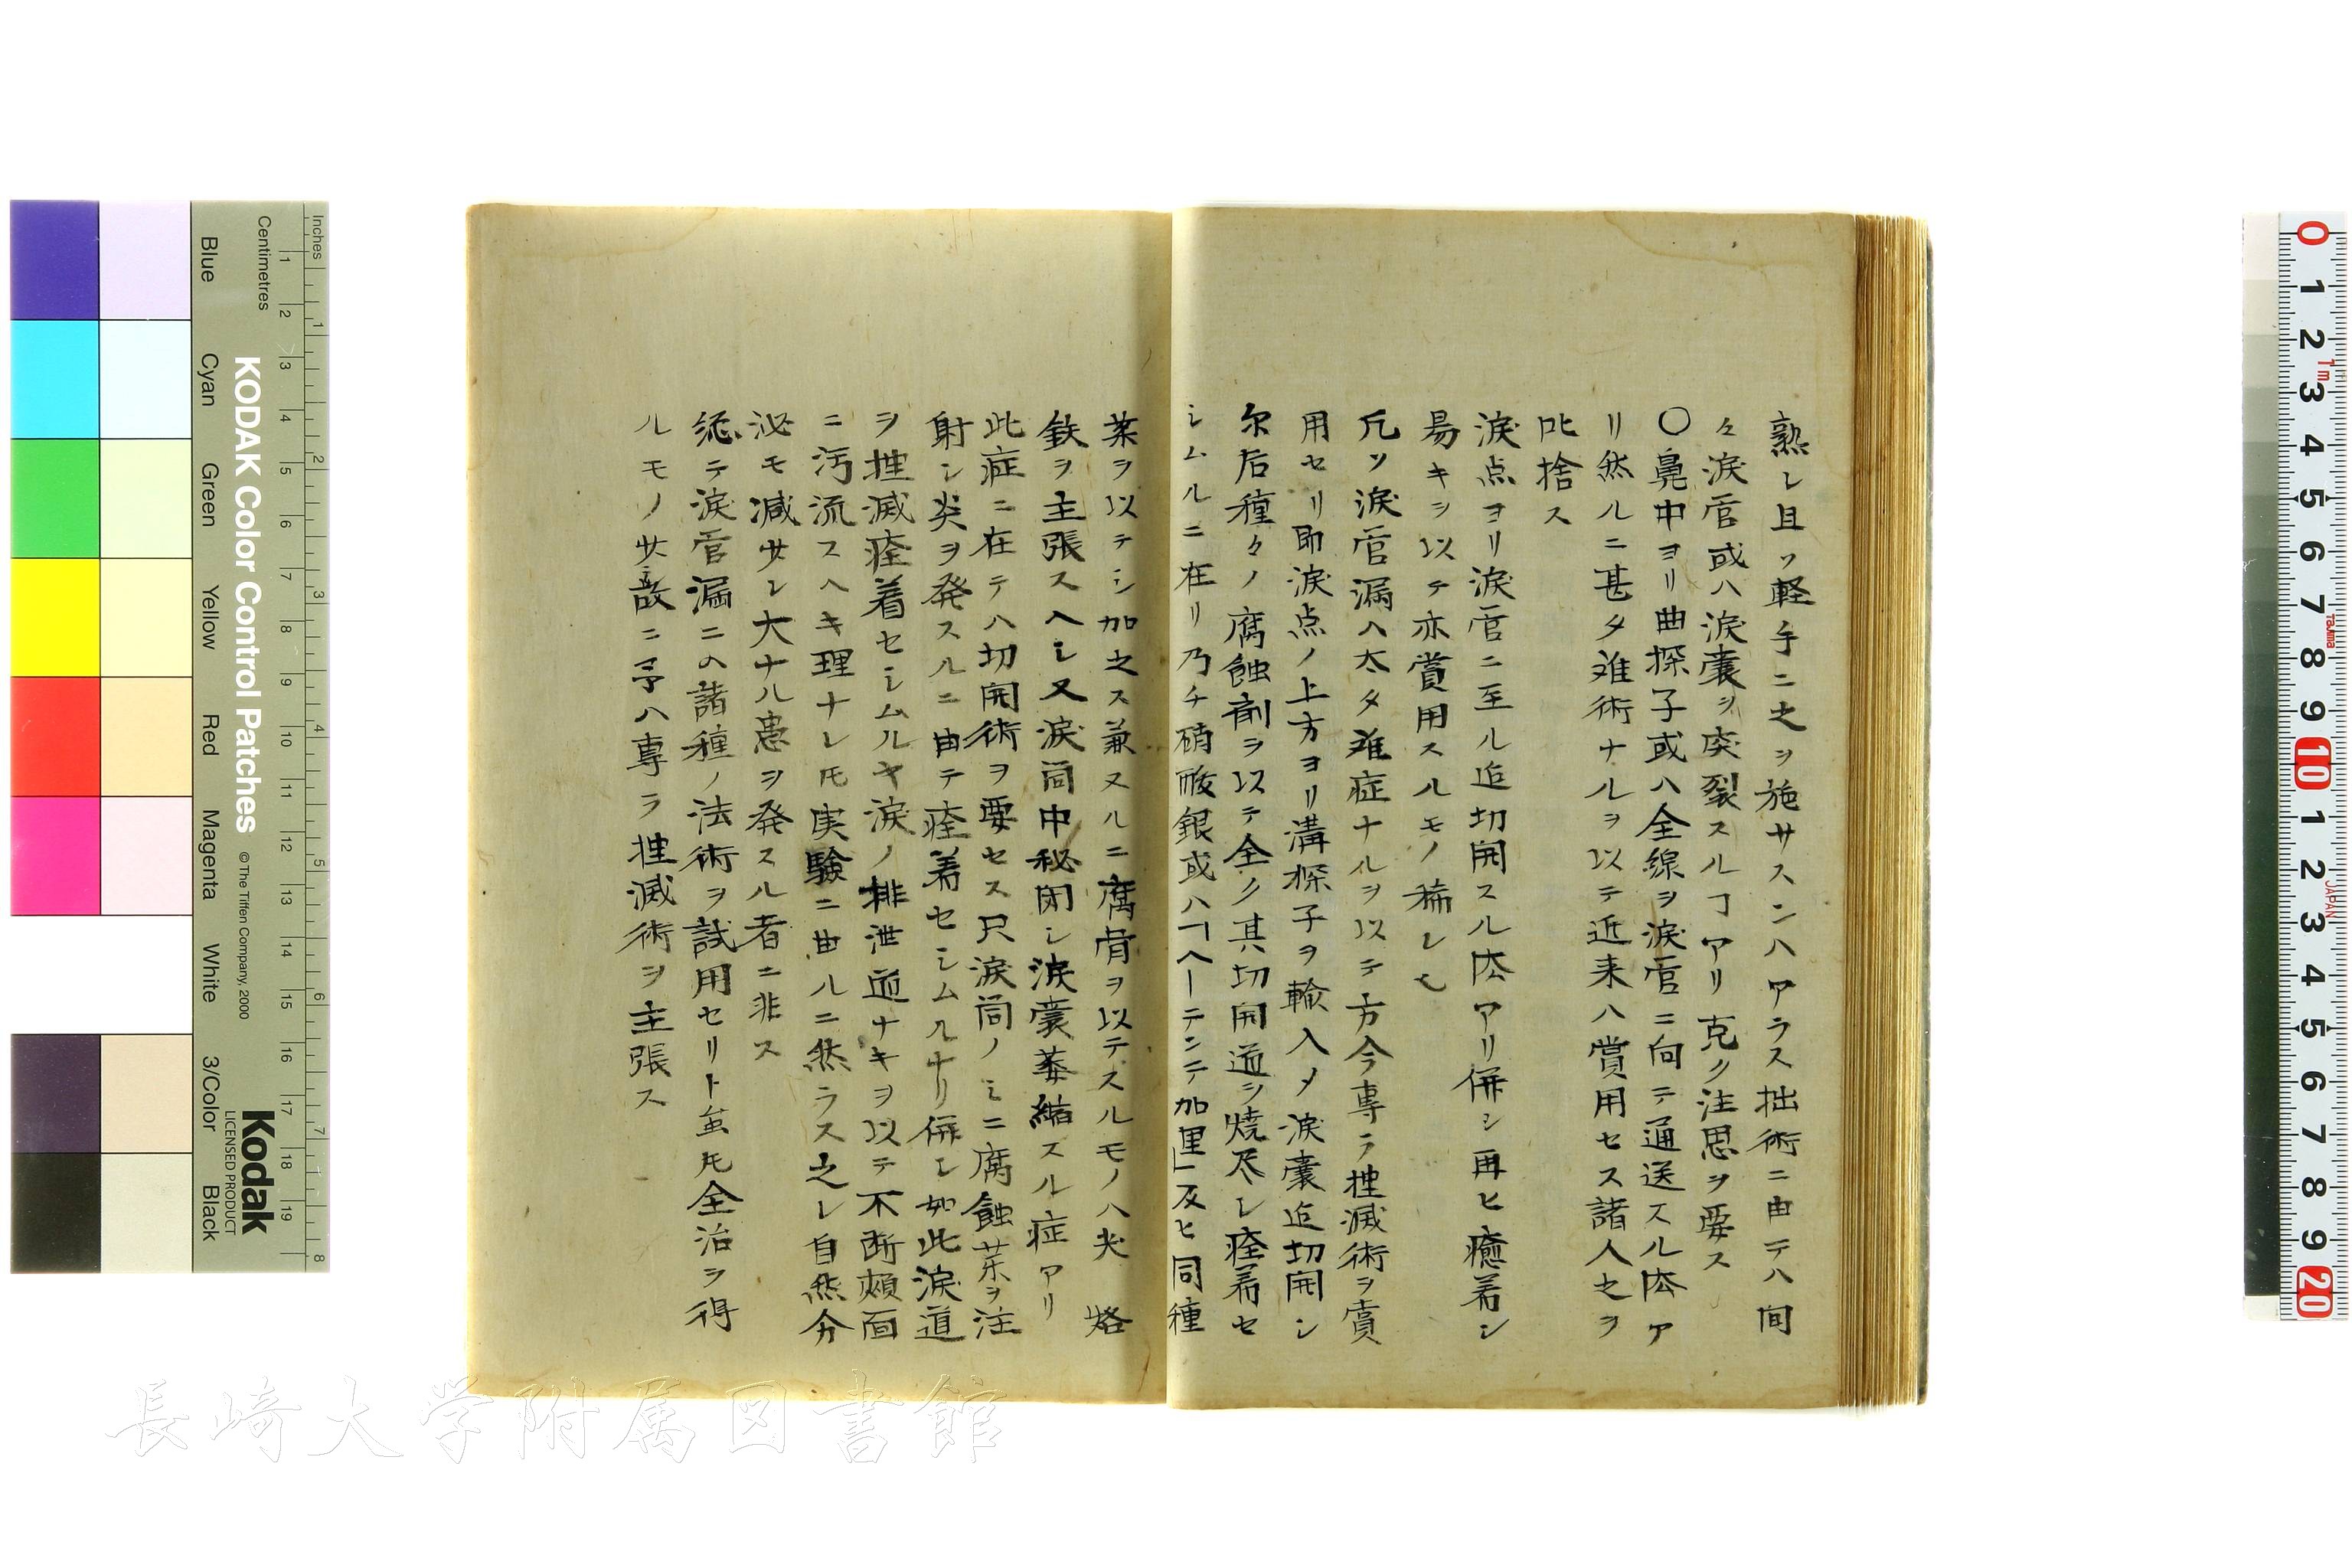 熟レ且ツ軽手ニ之ヲ施サスンハアラス拙術ニ由テハ間
々涙官或ハ涙嚢ヲ突裂スルヿアリ克ク注思ヲ要ス
〇鼻中ヨリ曲探子或ハ全線ヲ涙官ニ向テ通送スル术ア
リ然ルニ甚タ难術ナルヲ以テ近来ハ賞用セス諸人之ヲ
叱捨ス
涙点ヨリ涙官ニ至ル迠切開スル术アリ併シ再ヒ癒着シ
昜キヲ以テ亦賞用スルモノ稀レ也
凡ソ涙官漏ハ太タ难症ナルヲ以テ方今専ラ挫滅術ヲ賞
用セリ即涙点ノ上方ヨリ溝探子ヲ輸入メ涙嚢迠切開シ
尔后種々ノ腐蝕剤ヲ以テ全ク其切開道ヲ焼尽シ痊着セ
シムルニ在リ乃チ硝酸銀或ハ「ヘーテンテ加里」及ヒ同種
薬ヲ以テシ加之ス兼ヌルニ腐骨ヲ以テスルモノハ尖 烙
鉄ヲ主張スヘシ又涙筒中秘閉シ涙嚢萎縮スル症アリ
此症ニ在テハ切開術ヲ要セス只涙筒ノミニ腐蝕薬ヲ注
射シ炎ヲ発スルニ由テ痊着セシムルナリ併シ如此涙道
ヲ挫滅痊着セシムルキ涙ノ排泄道ナキヲ以テ不断頬面
ニ汚流スヘキ理ナレ𪜈実験ニ由ルニ然ラス之レ自然分
泌モ减サレ大ナル患ヲ発スル者ニ非ス
総テ涙官漏ニハ諸種ノ法術ヲ試用セリト虽𪜈全治ヲ得
ルモノ少故ニ予ハ専ラ挫滅術ヲ主張ス
Inches
Centimetres
KODAK Color Control Patches
©The Tiffen Company, 2000
Kodak
LICENSED PRODUCT
Blue Cyan Green Yellow Red Magenta White 3/Color Black
1 2 3 4 5 6 7 8
1 2 3 4 5 6 7 8 9 10 11 12 13 14 15 16 17 18 19
0 1 2 3 4 5 6 7 8 9 10 1 2 3 4 5 6 7 8 9 20
1m
Tajima
JAPAN
長崎大学附属図書館